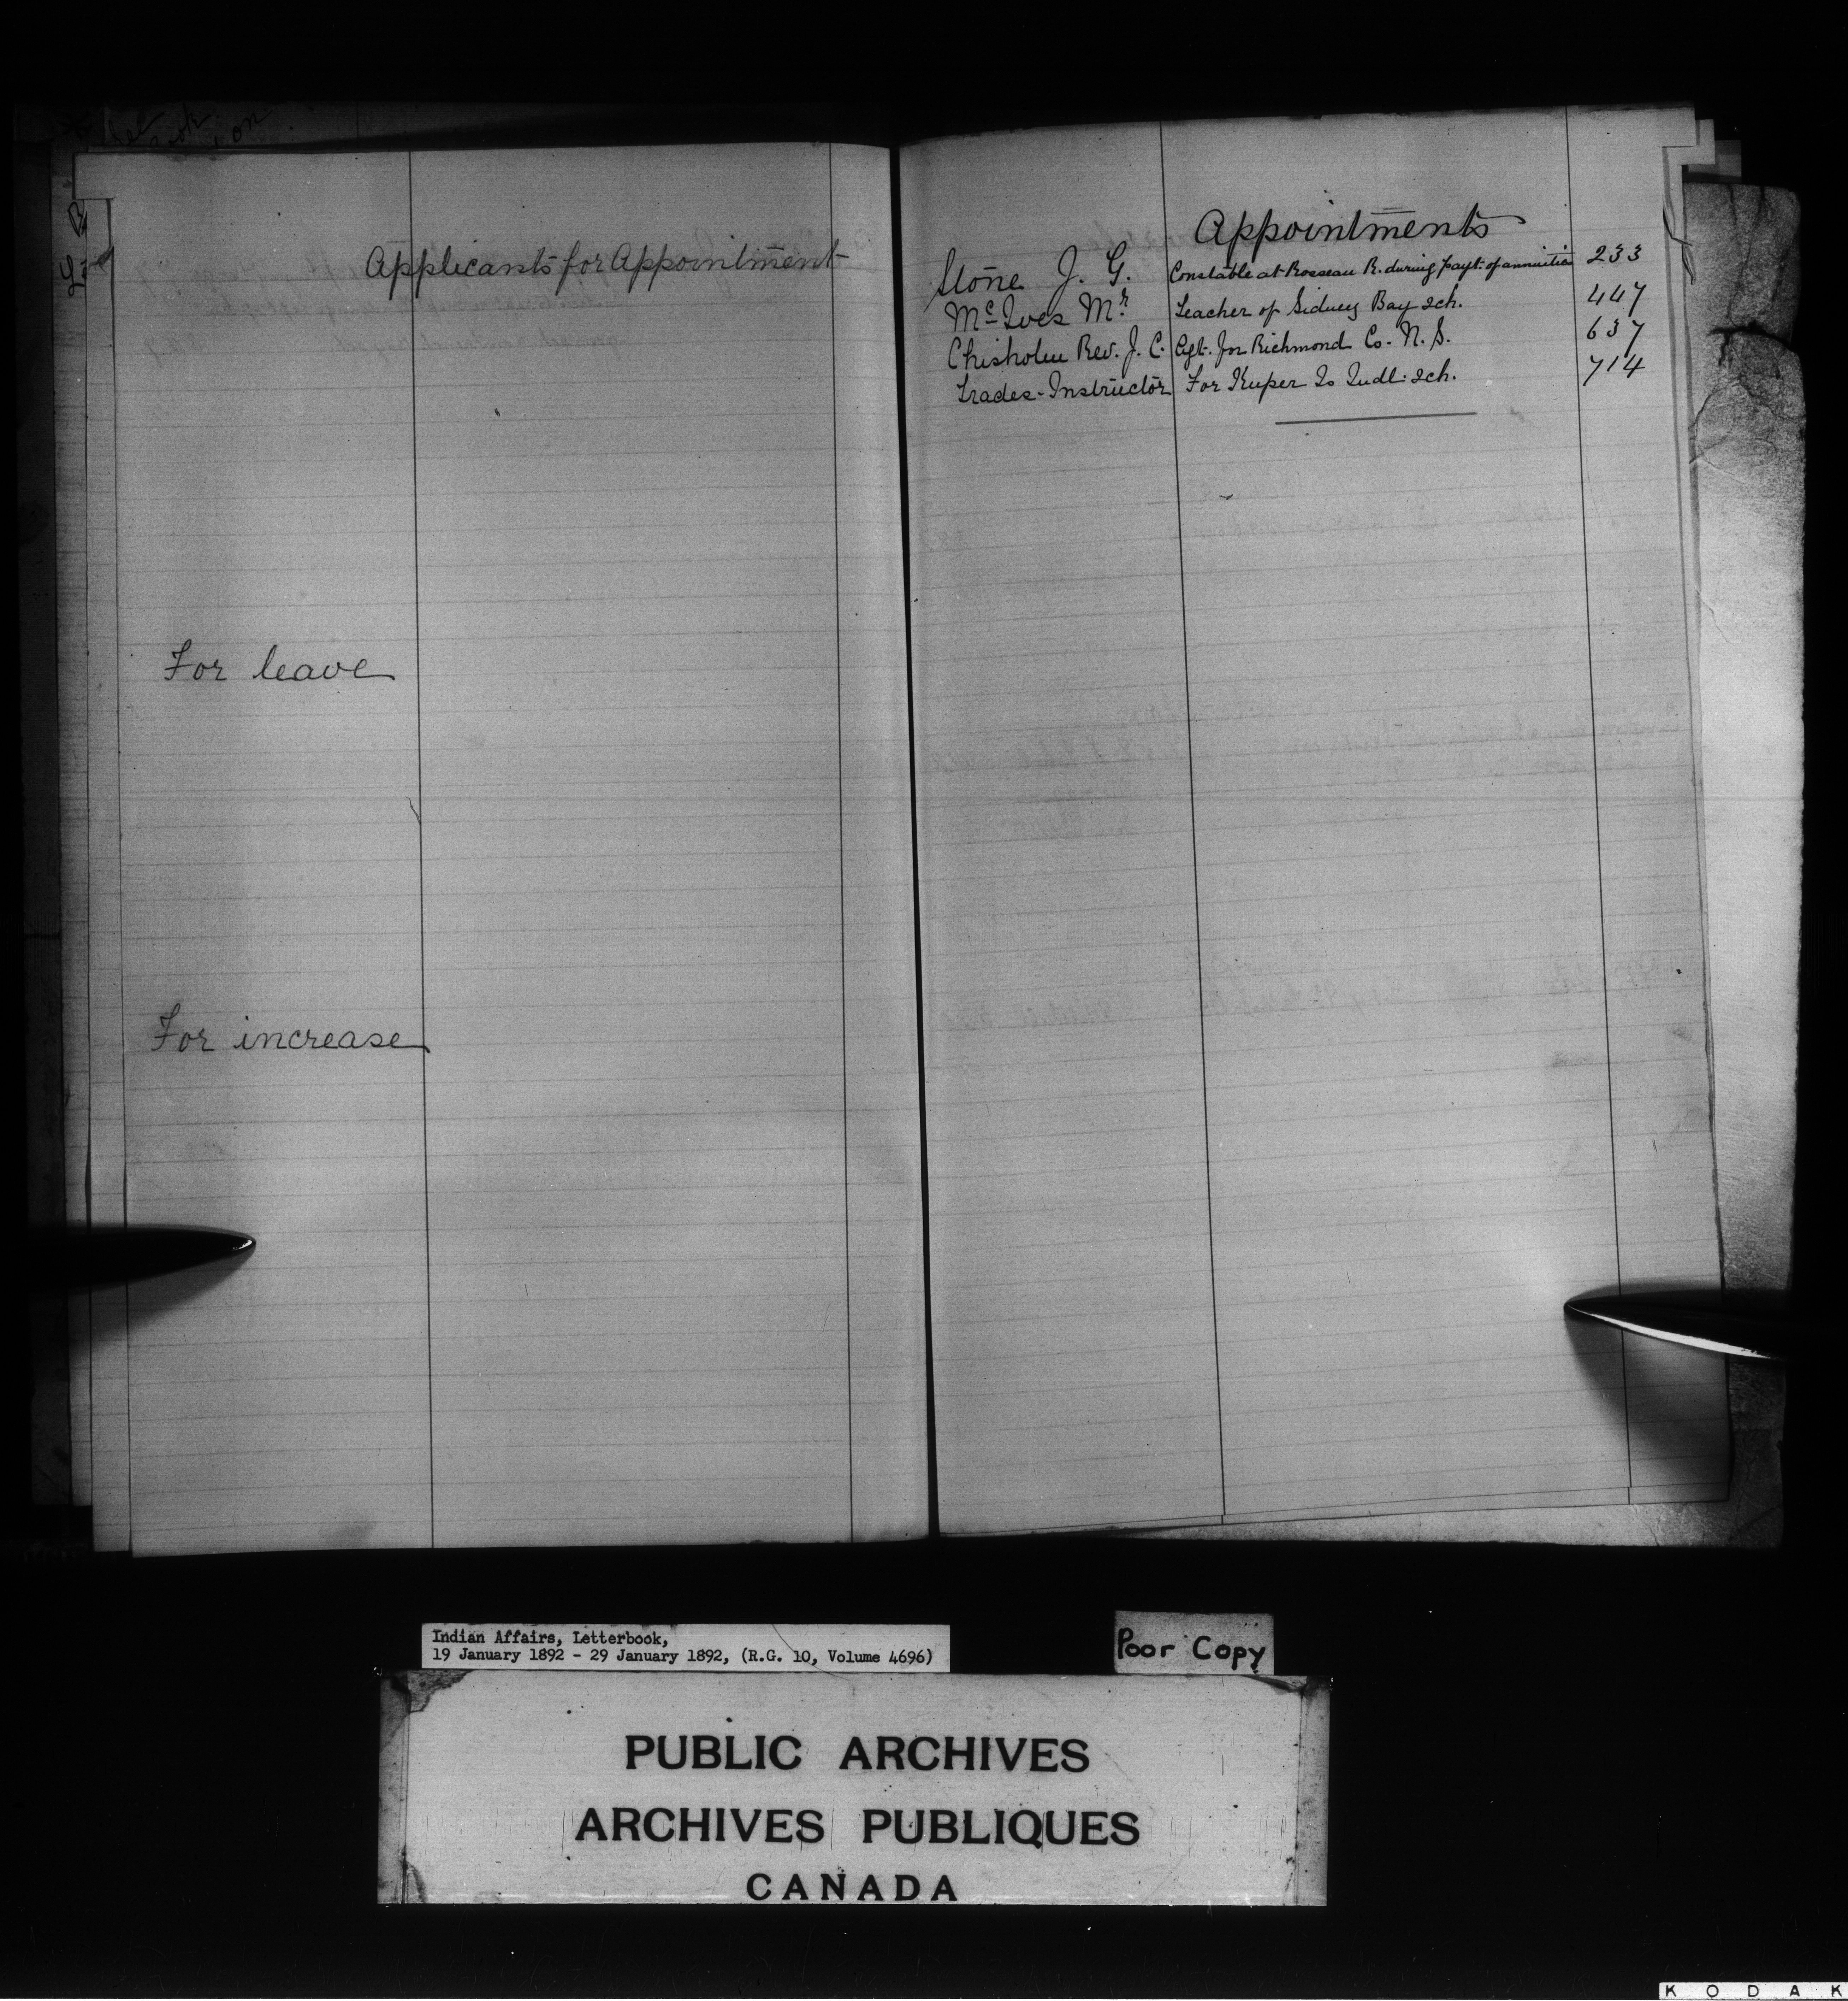 Applicants for Appointment
For leave
For increase
Appointments
Stone J. G. Constable at Rosseau R. during payt. of annuities 233
McIves Mr. Teacher of Sidney Bay Sch. 447
Chisholm Rev. J. C. Agt. for Richmond Co. N. S. 637
Trades-Instructor For Kuper Is Indl. Sch. 714
Indian Affairs, Letterbook,
19 January 1892 - 29 January 1892, (R.G. 10, Volume 4696)
Poor Copy
PUBLIC ARCHIVES
ARCHIVES PUBLIQUES
CANADA
KODAK